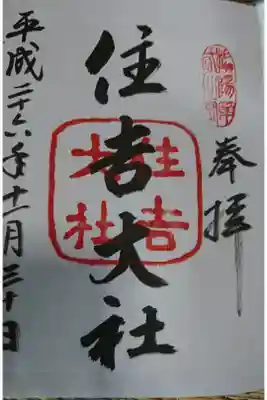 奉拝
住吉大社
住吉大社
平成二十六年十一月三十日